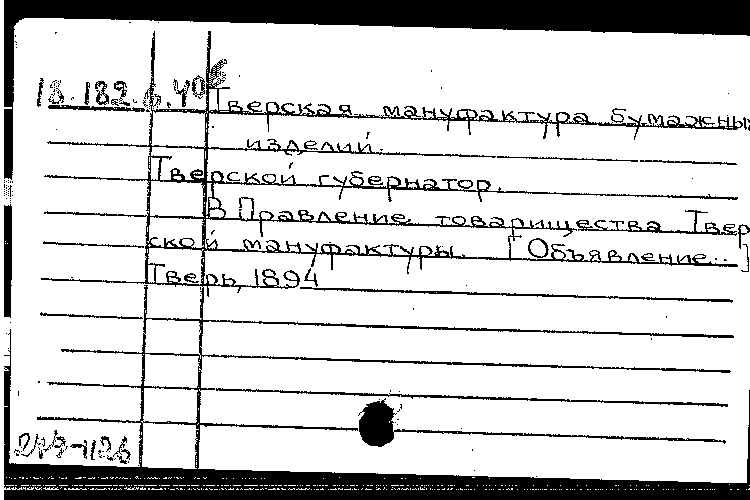 18.182.6.406
Тверская мануфактура бумажны
изделий.
Тверской губернатор.
В Правление товарищества Твер
ской мануфактуры. [Объявление...]
Тверь, 1894